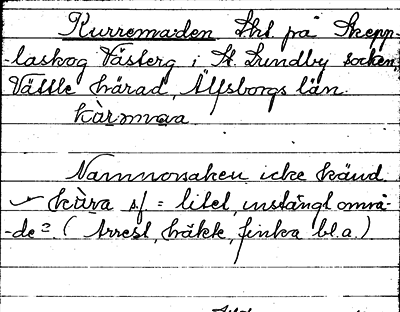 Kurremaden Skt. på Skepp-
-laskog Västerg i St. Lundby socken,
Vättle härad, Älfsborgs län.
Namnorsaken icke känd
kùra sf = litet, instängt områ-
-de? (Arrest, häkte, finka bl.a.)